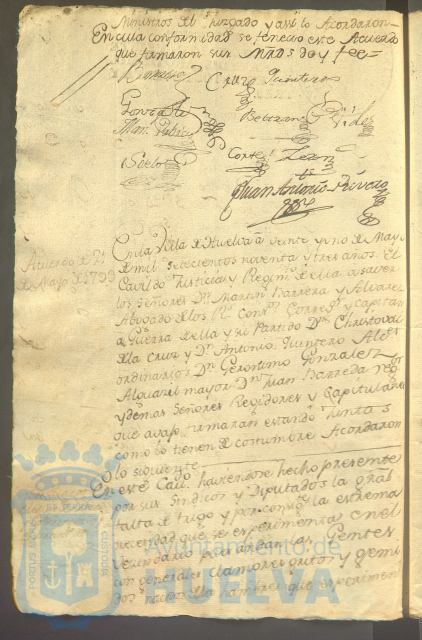 Ministros del Juzgado y assi lo Acordaron
En cuia conformidad se fenecio este Acuerdo
que firmaron sus Mrds doy fee
Barrera Cruz Quintero
Gonzalez
Cortes
Juan Antonio
Acuerdo de 21
de Mayo de 1793
En la Villa de Huelva a veinte y uno de Mayo
de mil setecientos noventa y tres años. El
Cavildo Justicia y Regimto de ella a saver
los Señores Dn Martin Barrera y Alvarez
Abogado de los Rs Consejos Corregr y Capitan
a Guerra de ella y su Partido Dn Christoval
de la Cruz y Dn Antonio Quintero Alces
ordinarios Dn Geronimo Gonzalez
Alguacil mayor Dn Juan Barreda regor
y demas Señores Regidores y Capitulares
que avajo firmaran estando juntos
como lo tienen de costumbre Acordaron
lo siguiente
En este Cavdo haviendose hecho presente
por sus Sindicos y Diputados la gral
falta de trigo y por consigte la extrema
necesidad que se experimenta en el
Vecindario las Gentes
con generales clamores gritos y gemi
dos la hambre que experimen
Ayuntamiento de
HUELVA
PORTUS
CUSTODIA